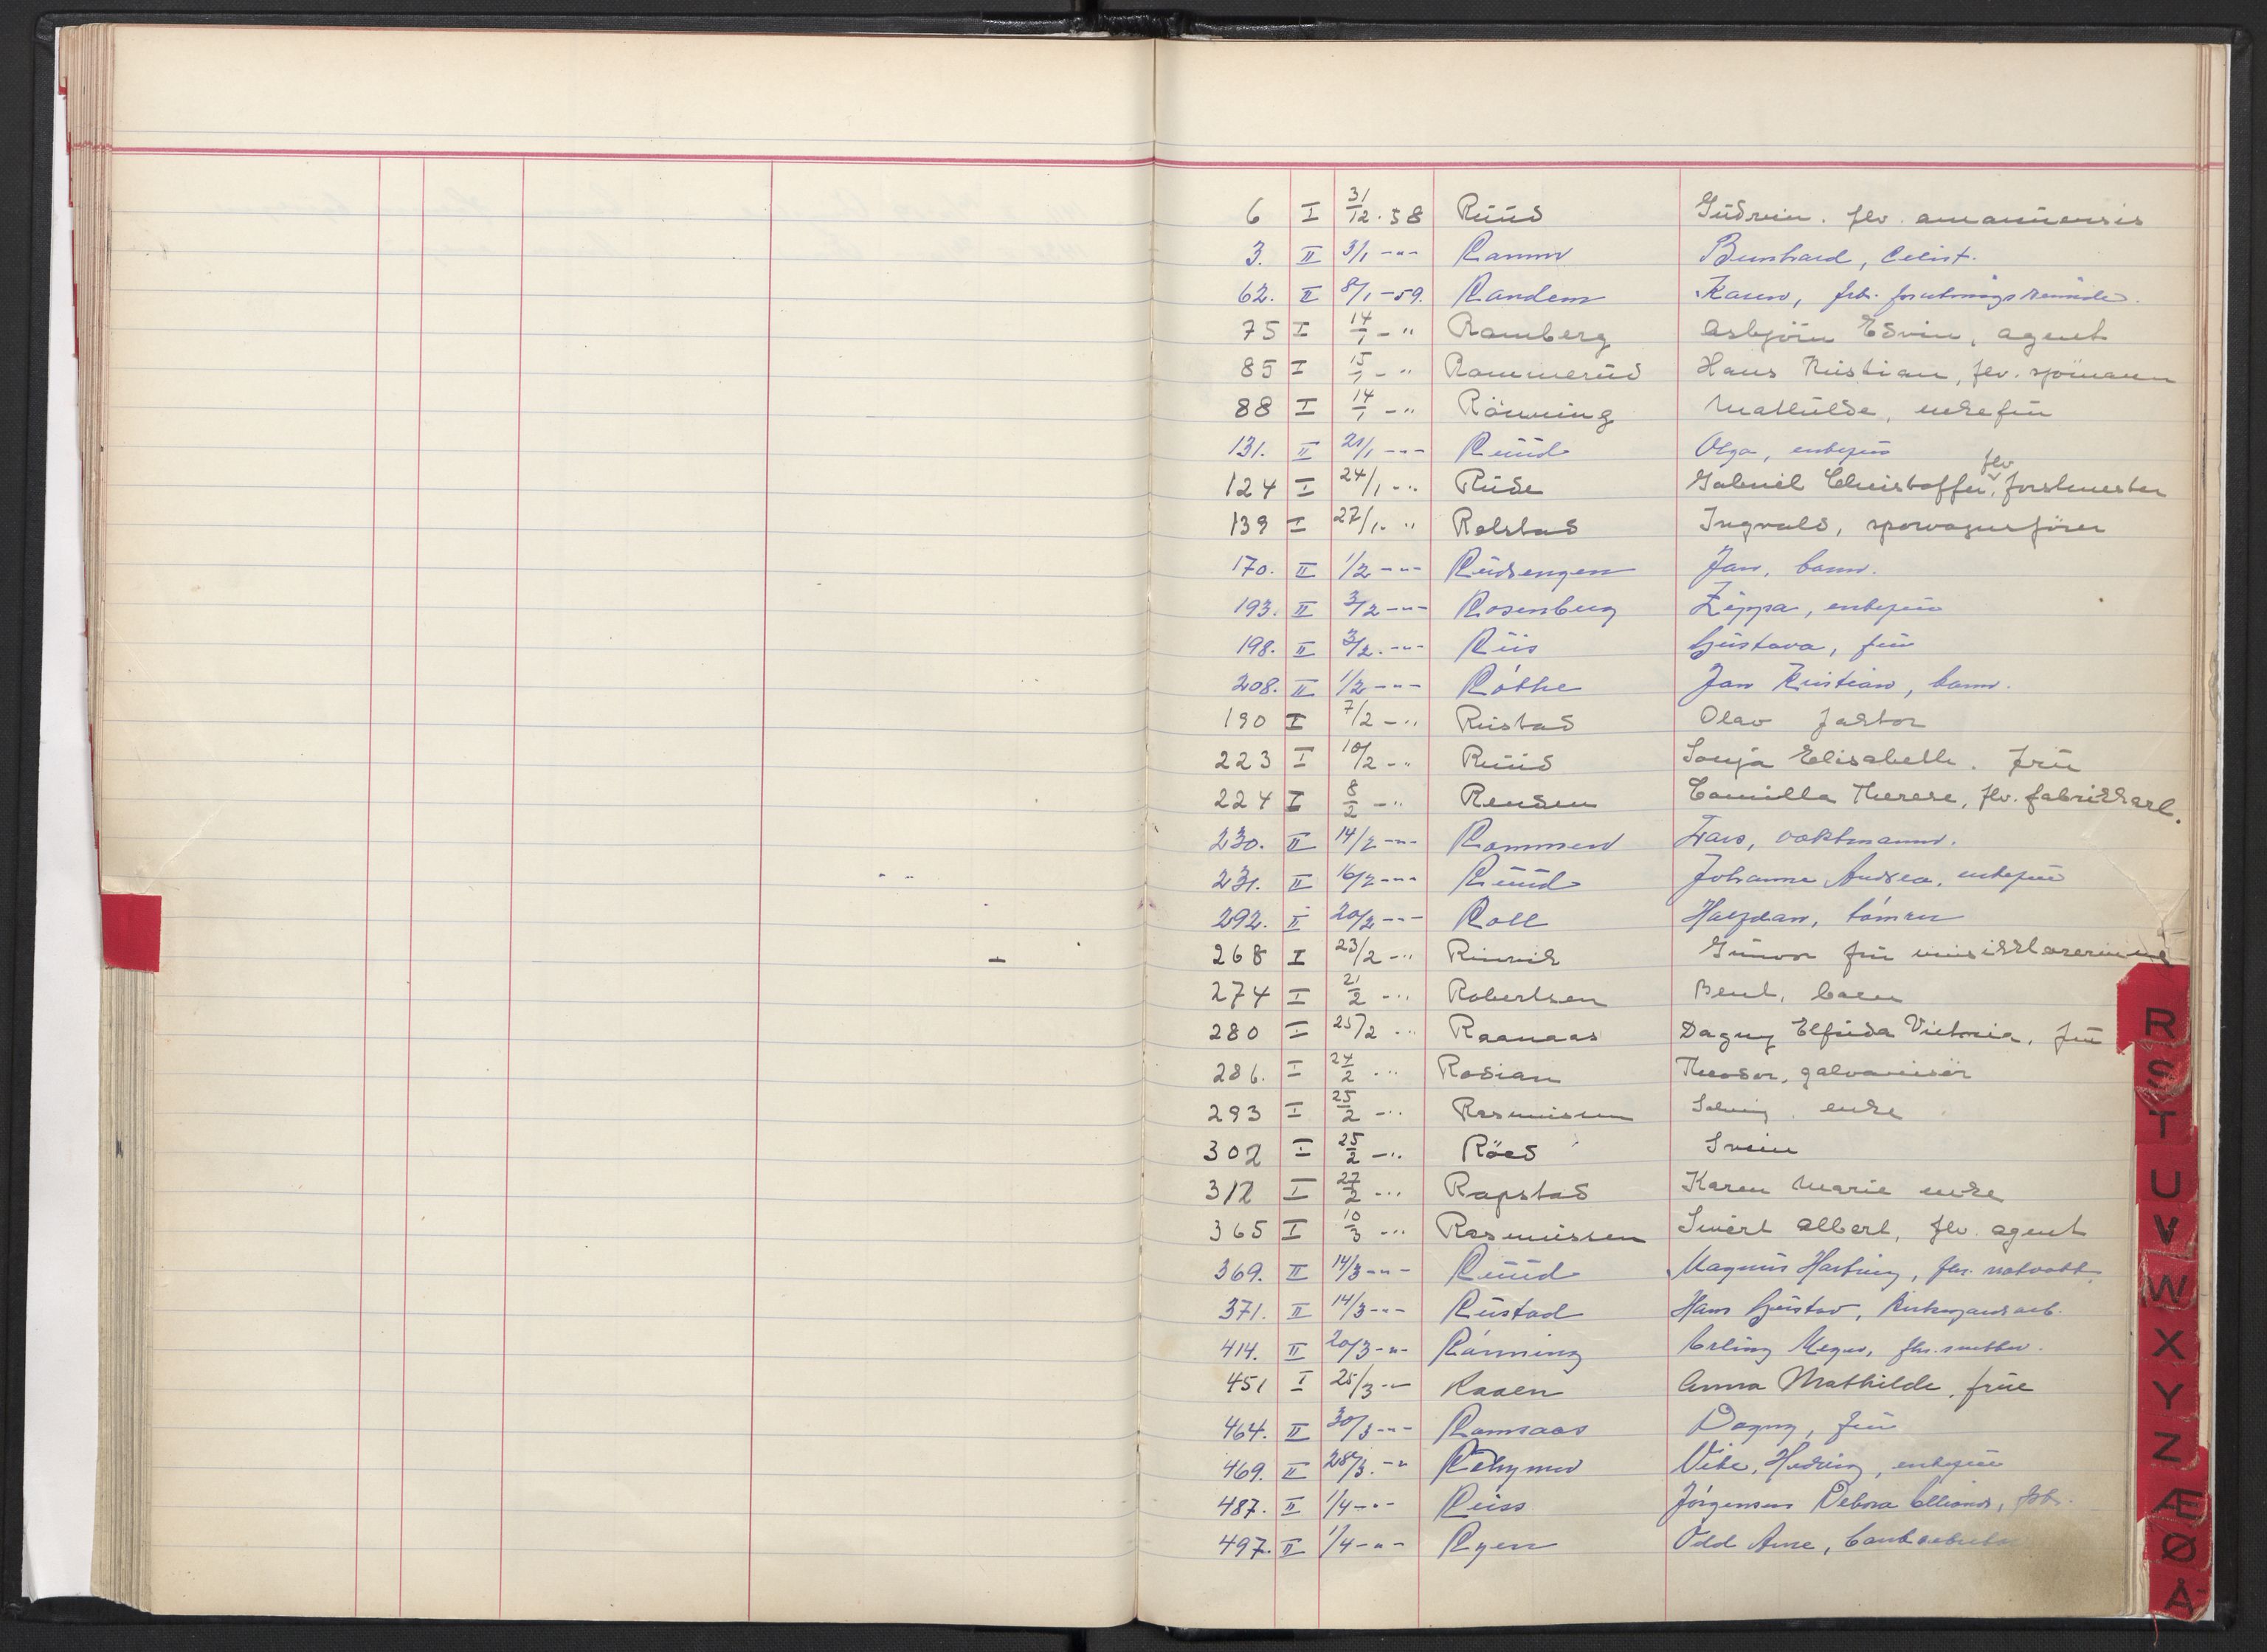 6 I 31/12 - 58 Ruud Gudrun. flv. amanuensis
3. II 3/1 -"- Ramm Bernhard,
62. II 8/1 - 59. Randem Karen, frk.
75 I 14/1 - " Ramberg Asbjörn Edvin, agent
85 I 15/1 - " Rammerud Hans Kristian, flv. sjömann
88 I 14/1 - " Rönning Mathilde, enkefru
131. II 21/1 -"- Ruud Olga, enkefru
124 I 24/1 - " Rude Gabriel Christoffer, flv forstmester
139 I 27/1 - " Rolstad Ingvald, sporvognsförer
170. II 1/2 -"- Rudsengen Jan, barn.
193. II 3/2 -"- Rosenberg Zippa, enkefru
198. II 3/2. -"- Riis Gustava, fru
208. II 1/2 -"- Röthe Jan Kristian, barn.
190 I 7/2 - " Rustad Olav faktor
223 I 10/2 - " Ruud Sonja Elisabeth. fru
224 I 8/2 - " Rensen Camilla Therese, flv. fabrikkarb.
230. II 14/2 -"- Rommen Lars, vaktmann.
231. II 16/2 -"- Ruud Johanne Andrea, enkefru
292. II 20/2 -"- Roll Halfdan, tömrer
268 I 23/2 - " Rinvik Gunvor fru musikklærerinne
274 I 21/2 - " Robertsen Bent, barn
280 I 25/2 " Raanaas Dagny Elfrida Victoria, fru
286. I 24/2 " Rosian Theodor, galvanisör
293 I 25/2 - " Rasmussen Solveig, enke
302 I 25/2 - " Röed Svein
312 I 27/2 - " Rapstad Karen Marie enke
365 I 10/3 - " Rasmussen Sivert Albert, flv. agent
369. II 14/3 -"- Ruud Magnus Hartvig, flv.
371. II 14/3 -"- Rustad Hans Gustav, kirkegaardsarb.
414. II 20/3 -"- Rönning Erling Meyer, flv.
451 I 25/3 -" Raaen Anna Mathilde, frue
464. II 30/3 -"- Ramsaas Dagny, fru
469. II 28/3. -" Vibe, Hedvig, enkefru
487. II 1/4 -"- Riiss Jörgensen Debora
497. II 1/4 -"- Ryen Odd Arne,
R
S
T
U
V
W
X
Y
Z
Æ
Ø
Å